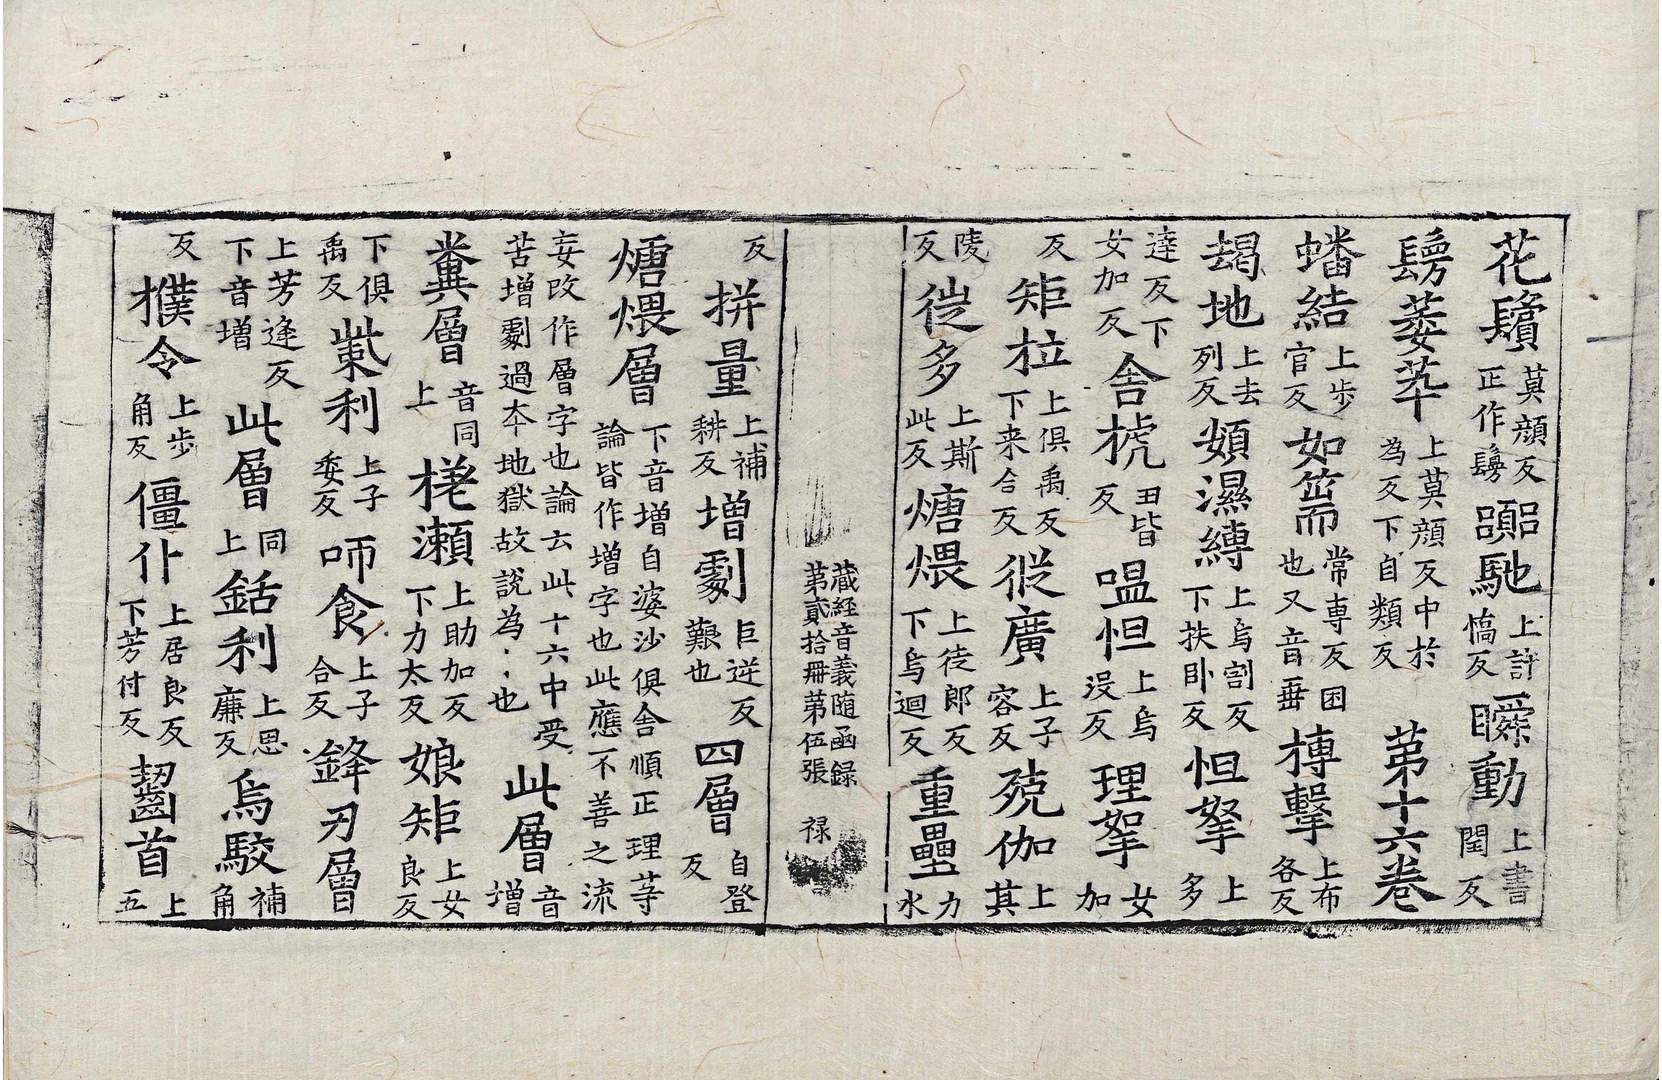 花 莫顔反正作鬘 馳 上許憍反 瞬動 上書閏反
上莫顔反中於為反下自類反 第十六卷
蟠結 上步官反 如篅 常専反囤也又音垂 榑擊 上布各反
朅地 上去列反 頞濕縛 上烏割反下扶卧反 怛拏 上多
達反下女加反 舍 丑皆反 嗢怛 上烏没反 理拏 女加
反 矩柆 上俱禹反下来合反 從廣 上子容反 殑伽 上其
陵反 徙多 上斯此反 煻煨 上徒郎反下烏迴反 重壘 力水
藏經音義随函録
第貳拾冊第伍張 禄
反 拼量 上補耕反 增劇 巨逆反艱也 四層 自登反
煻煨層 下音增自婆沙俱舍順正理等論皆作增字也此應不善之流
妄改作層字也論云此十六中受苦增劇過本地獄故說為〻也 此層 音增
糞層 音同上 瀬 上助加反下力太反 娘矩 上女良反
下俱禹反 利 上子委反 咂食 上子合反 鋒刃層
上芳逢反下音增 此層 同上 銛利 上思廉反 烏駮 補角
反 撲令 上步角反 僵仆 上居良反下芳付反 齧首 上五